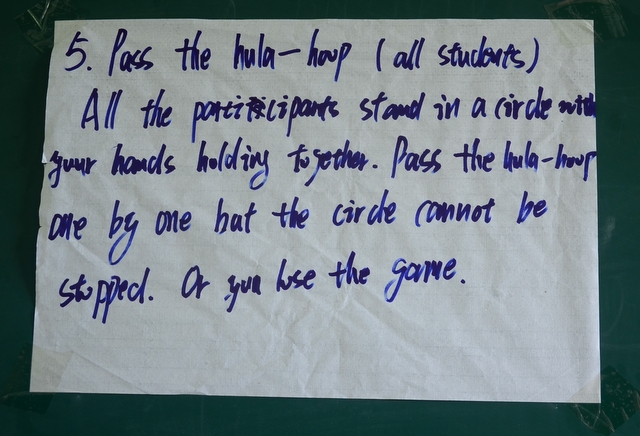 5. Pass the hula-hoop (all students)
All the participants stand in a circle with
your hands holding together. Pass the hula-hoop
one by one but the circle cannot be
stopped. Or you lose the game.